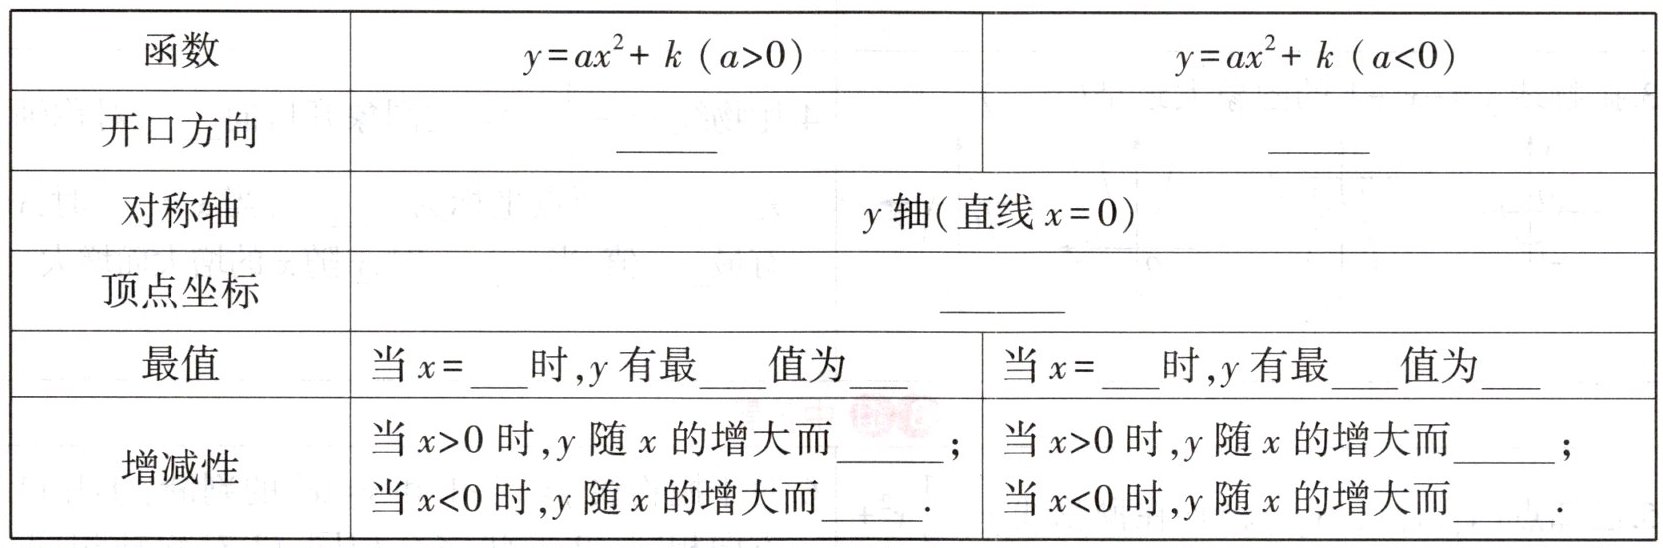 函数 y=ax²+ k (a>0) y=ax²+ k (a<0)
开口方向 _____ _____
对称轴 y 轴(直线 x=0)
顶点坐标 ______
最值 当 x=___时,y 有最___值为___ 当 x=___时,y 有最___值为___
增减性
当 x>0 时,y 随 x 的增大而_____;
当 x<0 时,y 随 x 的增大而_____.
当 x>0 时,y 随 x 的增大而_____;
当 x<0 时,y 随 x 的增大而_____.